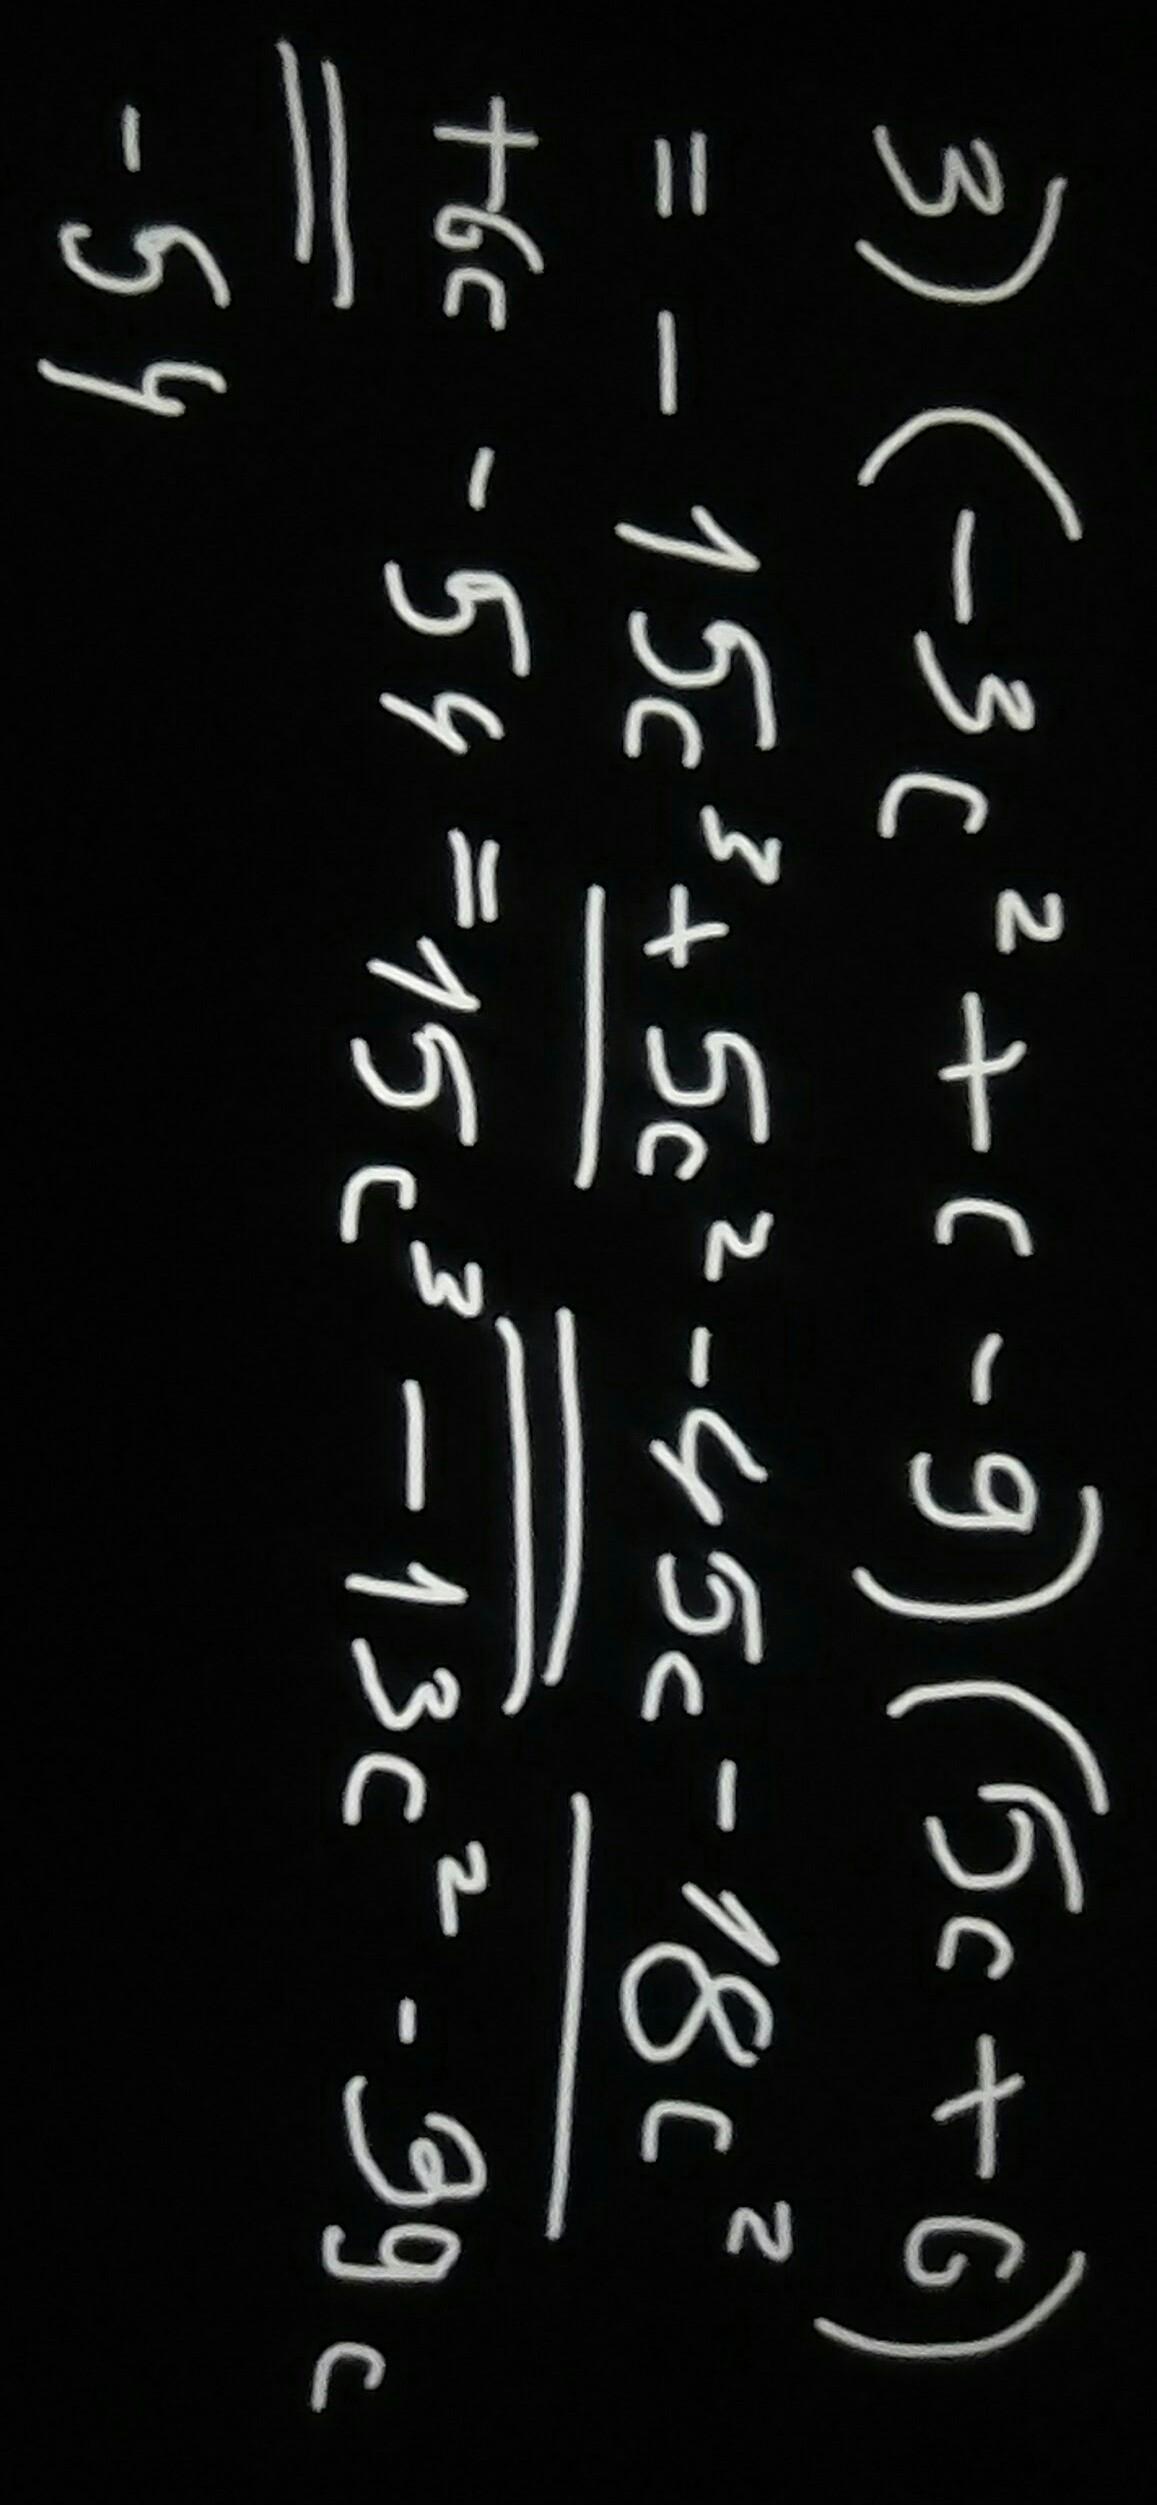 3) (-3c² + c - 9)(5c + 6)
= - 15c³ + 5c² - 45c - 18c²
+ 6c - 54 = 15c³ - 13c² - 39c
- 54